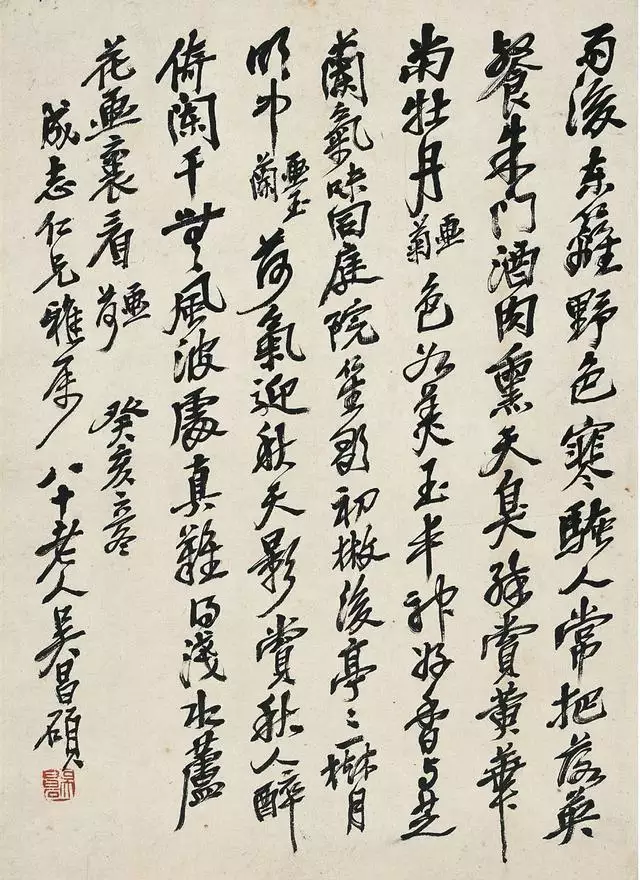 雨後東籬野色寒騷人常把落英
餐朱門酒肉熏天臭賞黃華
當牡丹畫菊色如美玉丰神好香與芝
蘭氣味同庭院笙歌初撤後亭〻一樹月
明中畫玉蘭荷氣迎秋天影賞秋人醉
倚闌干無風波處真難得淺水蘆
花畫裏看畫荷癸亥立冬
志仁兄雅屬八十老人吳昌碩